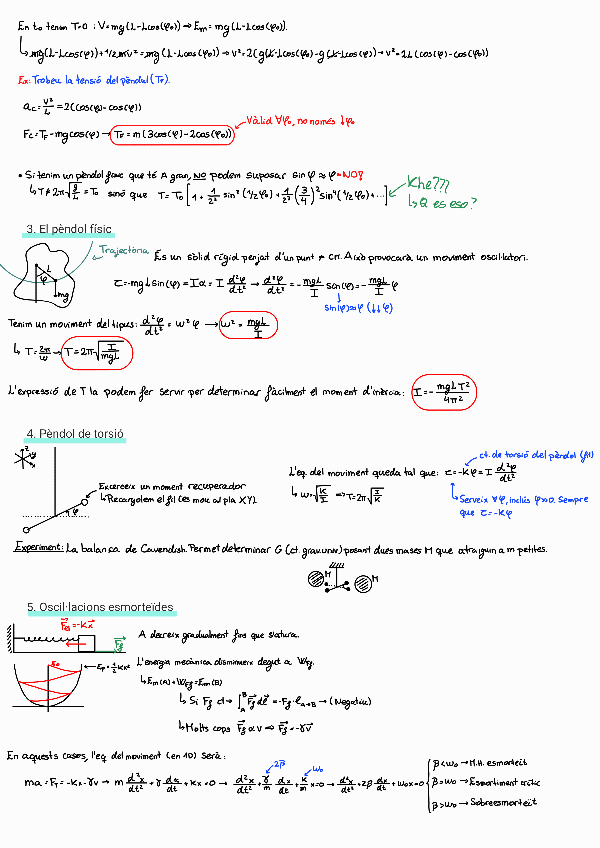 En t₀ tenim T=0 : V=mg(L-Lcos(φ₀)) ⇒ Em=mg(L-Lcos(φ₀)).
↳ mg(L-Lcos(φ))+1/2mv²=mg(L-Lcos(φ₀)) → v²=2(g(L-Lcos(φ)-g(L-Lcos(φ₀)) → v²=2L(cos(φ)-cos(φ₀))
Ex: Trobeu la tensió del pèndul (T_F).
a_c=v²/L=2(cos(φ)-cos(φ₀))
F_c=T_F-mgcos(φ) → T_F=m(3cos(φ)-2cos(φ₀)) Vàlid ∀φ₀, no només ↓φ₀
• Si tenim un pèndol fisic que té A gran, NO podem suposar sinφ≈φ ⇒ NO!
↳ T≠2π√(g/L)=T₀ sinó que T=T₀[1+1/2² sin²(1/2φ₀)+1/2²(3/4)²sin⁴(1/2φ₀)+...] Khe???
↳ Q es eso?
3. El pèndol físic
Trajectòria
És un sòlid rígid penjat d'un punt ≠ cm. Això provocarà un moviment oscil·latori.
L φ mg
τ=-mgLsin(φ)=Iα=I d²φ/dt² → d²φ/dt²=-mgL/I sin(φ)=-mgL/I φ
sin(φ)≈φ (↓↓φ)
Tenim un moviment del tipus: d²φ/dt²=ω²φ → ω²=mgL/I
↳ T=2π/ω → T=2π√(I/mgL)
L'expressió de T la podem fer servir per determinar fàcilment el moment d'inèrcia: I=-mgLT²/4π²
4. Pèndol de torsió
z y x
ct. de torsió del pèndol (fil)
L'eq. del moviment queda tal que: τ=-κφ=I d²φ/dt²
Exerceix un moment recuperador
↳ Recargolem el fil (es mou al pla XY).
φ
↳ ω=√(κ/I) ⇒ T=2π√(I/κ)
↳ Serveix ∀φ, inclús φ>>0. Sempre
que τ=-κφ
Experiment: La balança de Cavendish. Permet determinar G (ct. grav. univ) posant dues mases M que atraiguin a m petites.
M M
5. Oscil·lacions esmorteïdes
F_e=-kx
F_f
A decreix gradualment fins que s'atura.
E₀
E_p=1/2kx²
L'energia mecànica disminueix degut a W_Ff.
↳ Em(A)+W_Ff=Em(B)
↳ Si F_f ct → ∫_A^B F_f dl=-F_f·l_A→B → (Negatiu)
↳ Molts cops F_f α v ⇒ F_f=-γv
En aquests cases, l'eq. del moviment (en 1D) serà:
2β ω₀
ma=F_T=-kx-γv → m d²x/dt²+γ dx/dt+kx=0 → d²x/dt²+γ/m dx/dt+k/m x=0 → d²x/dt²+2β dx/dt+ω₀x=0
β<ω₀ → M.H. esmorteït
β=ω₀ → Esmortiment crític
β>ω₀ → Sobreesmorteït